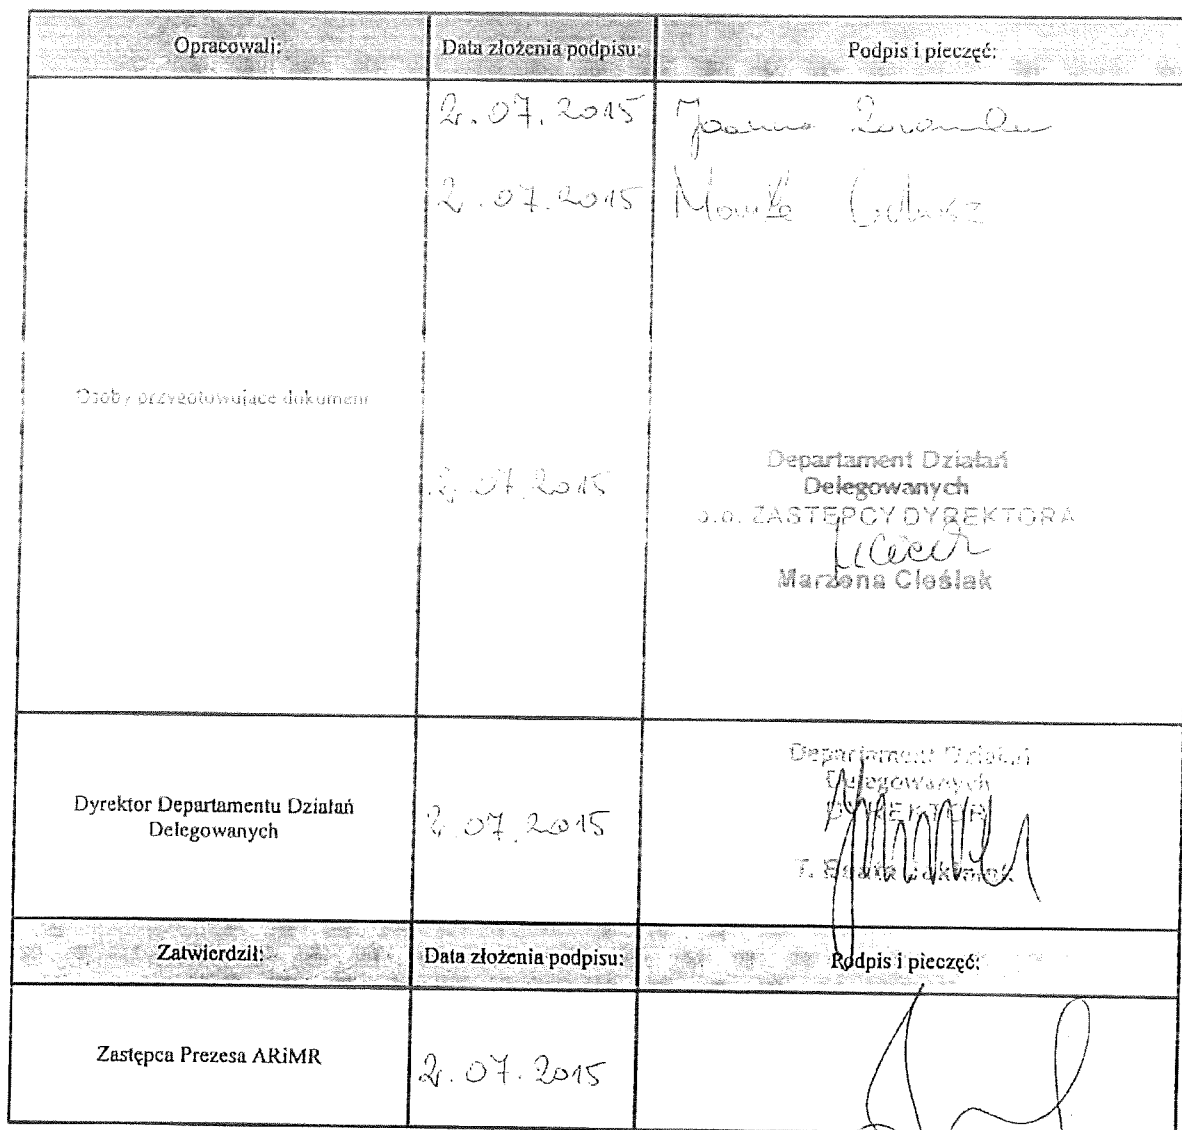 Opracowali: Data złożenia podpisu: Podpis i pieczęć:
2.07.2015 Joanna
2.07.2015
Osoby przygotowujące dokument
2.07.2015
Departament Działań
Delegowanych
p.o. ZASTĘPCY DYREKTORA
Marzena Cieślak
Dyrektor Departamentu Działań
Delegowanych
2.07.2015
Departament Działań
Delegowanych
DYREKTOR
T. Beata
Zatwierdził: Data złożenia podpisu: Podpis i pieczęć:
Zastępca Prezesa ARiMR
2.07.2015